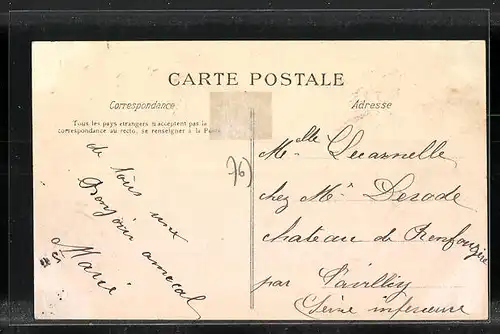 CARTE POSTALE
Correspondance
Adresse
Tous les pays étrangers n'acceptent pas la
correspondance au recto, se renseigner à la Poste
de tous un
Bonjour amical
Marie
76)
Melle Lecarnelle
chez Mr Derode
chateau de
par Pavilly
Seine inferieure